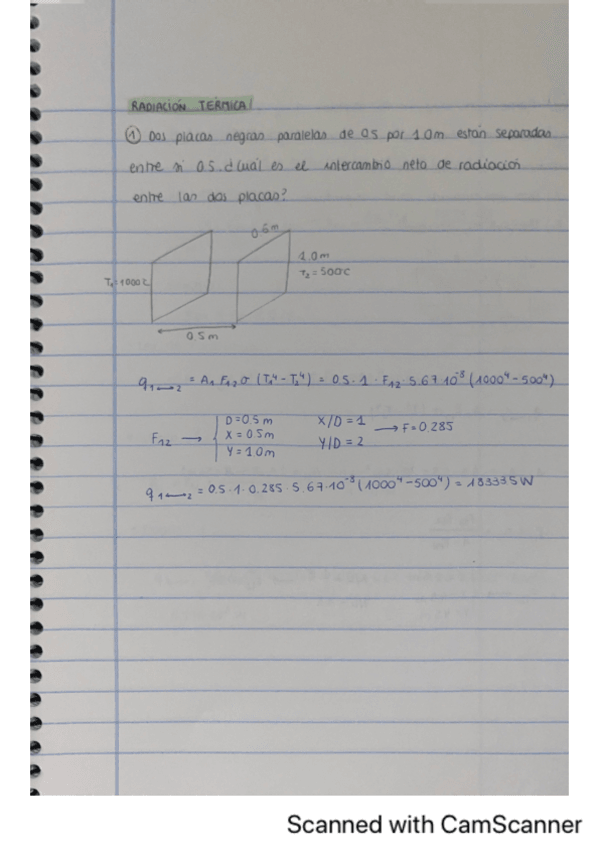 RADIACIÓN TÉRMICA
① Dos placas negras paralelas de 0.5 por 1.0m están separadas
entre si 0.5. ¿Cuál es el intercambio neto de radiación
entre las dos placas?
0.5m
1.0m
T₁=1000℃
T₂=500℃
0.5m
q₁↔₂ = A₁ F₁₂ σ (T₁⁴ - T₂⁴) = 0.5 · 1 · F₁₂ · 5.67 · 10⁻⁸ (1000⁴ - 500⁴)
D=0.5m X/D = 1
F₁₂ → X = 0.5m → F=0.285
Y = 1.0m Y/D = 2
q₁↔₂ = 0.5 · 1 · 0.285 · 5.67 · 10⁻⁸ (1000⁴ - 500⁴) = 18333.5 W
Scanned with CamScanner